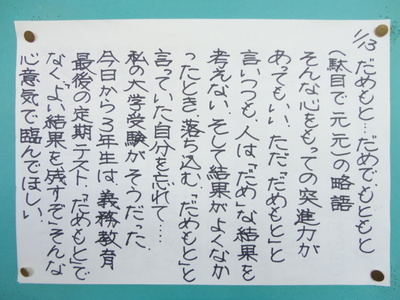 1/13
だめもと…だめで、もともと
(駄目で元元)の略語
そんな心をもっての突進力が
あってもいい。ただ「だめもと」と
言いつつも、人は「だめ」な結果を
考えない。そして結果がよくなか
ったとき、落ち込む。「だめもと」と
言っていた自分を忘れて…
私の大学受験がそうだった。
今日から3年生は、義務教育
最後の定期テスト、「だめもと」で
なく、「よい結果を残すぞ」そんな
心意気で臨んでほしい。